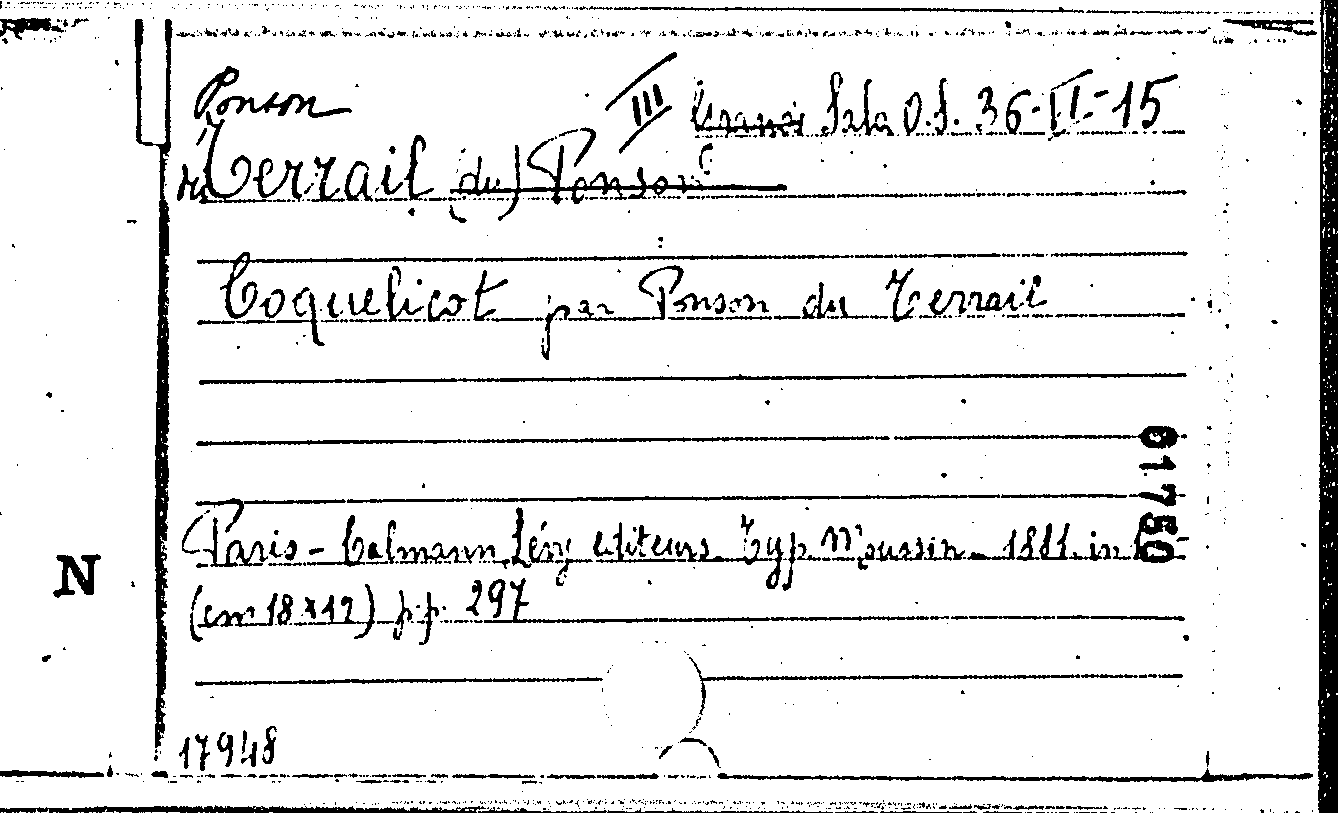 Ponson
III Grande Sala O.S. 36-II-15
du Terrail (du) Ponson
Coquelicot par Ponson du Terrail
61750
Paris - Calmann Lévy editeurs. Typ Moussin - 1881. in
N
(cm 18x12) p.p. 297
17948